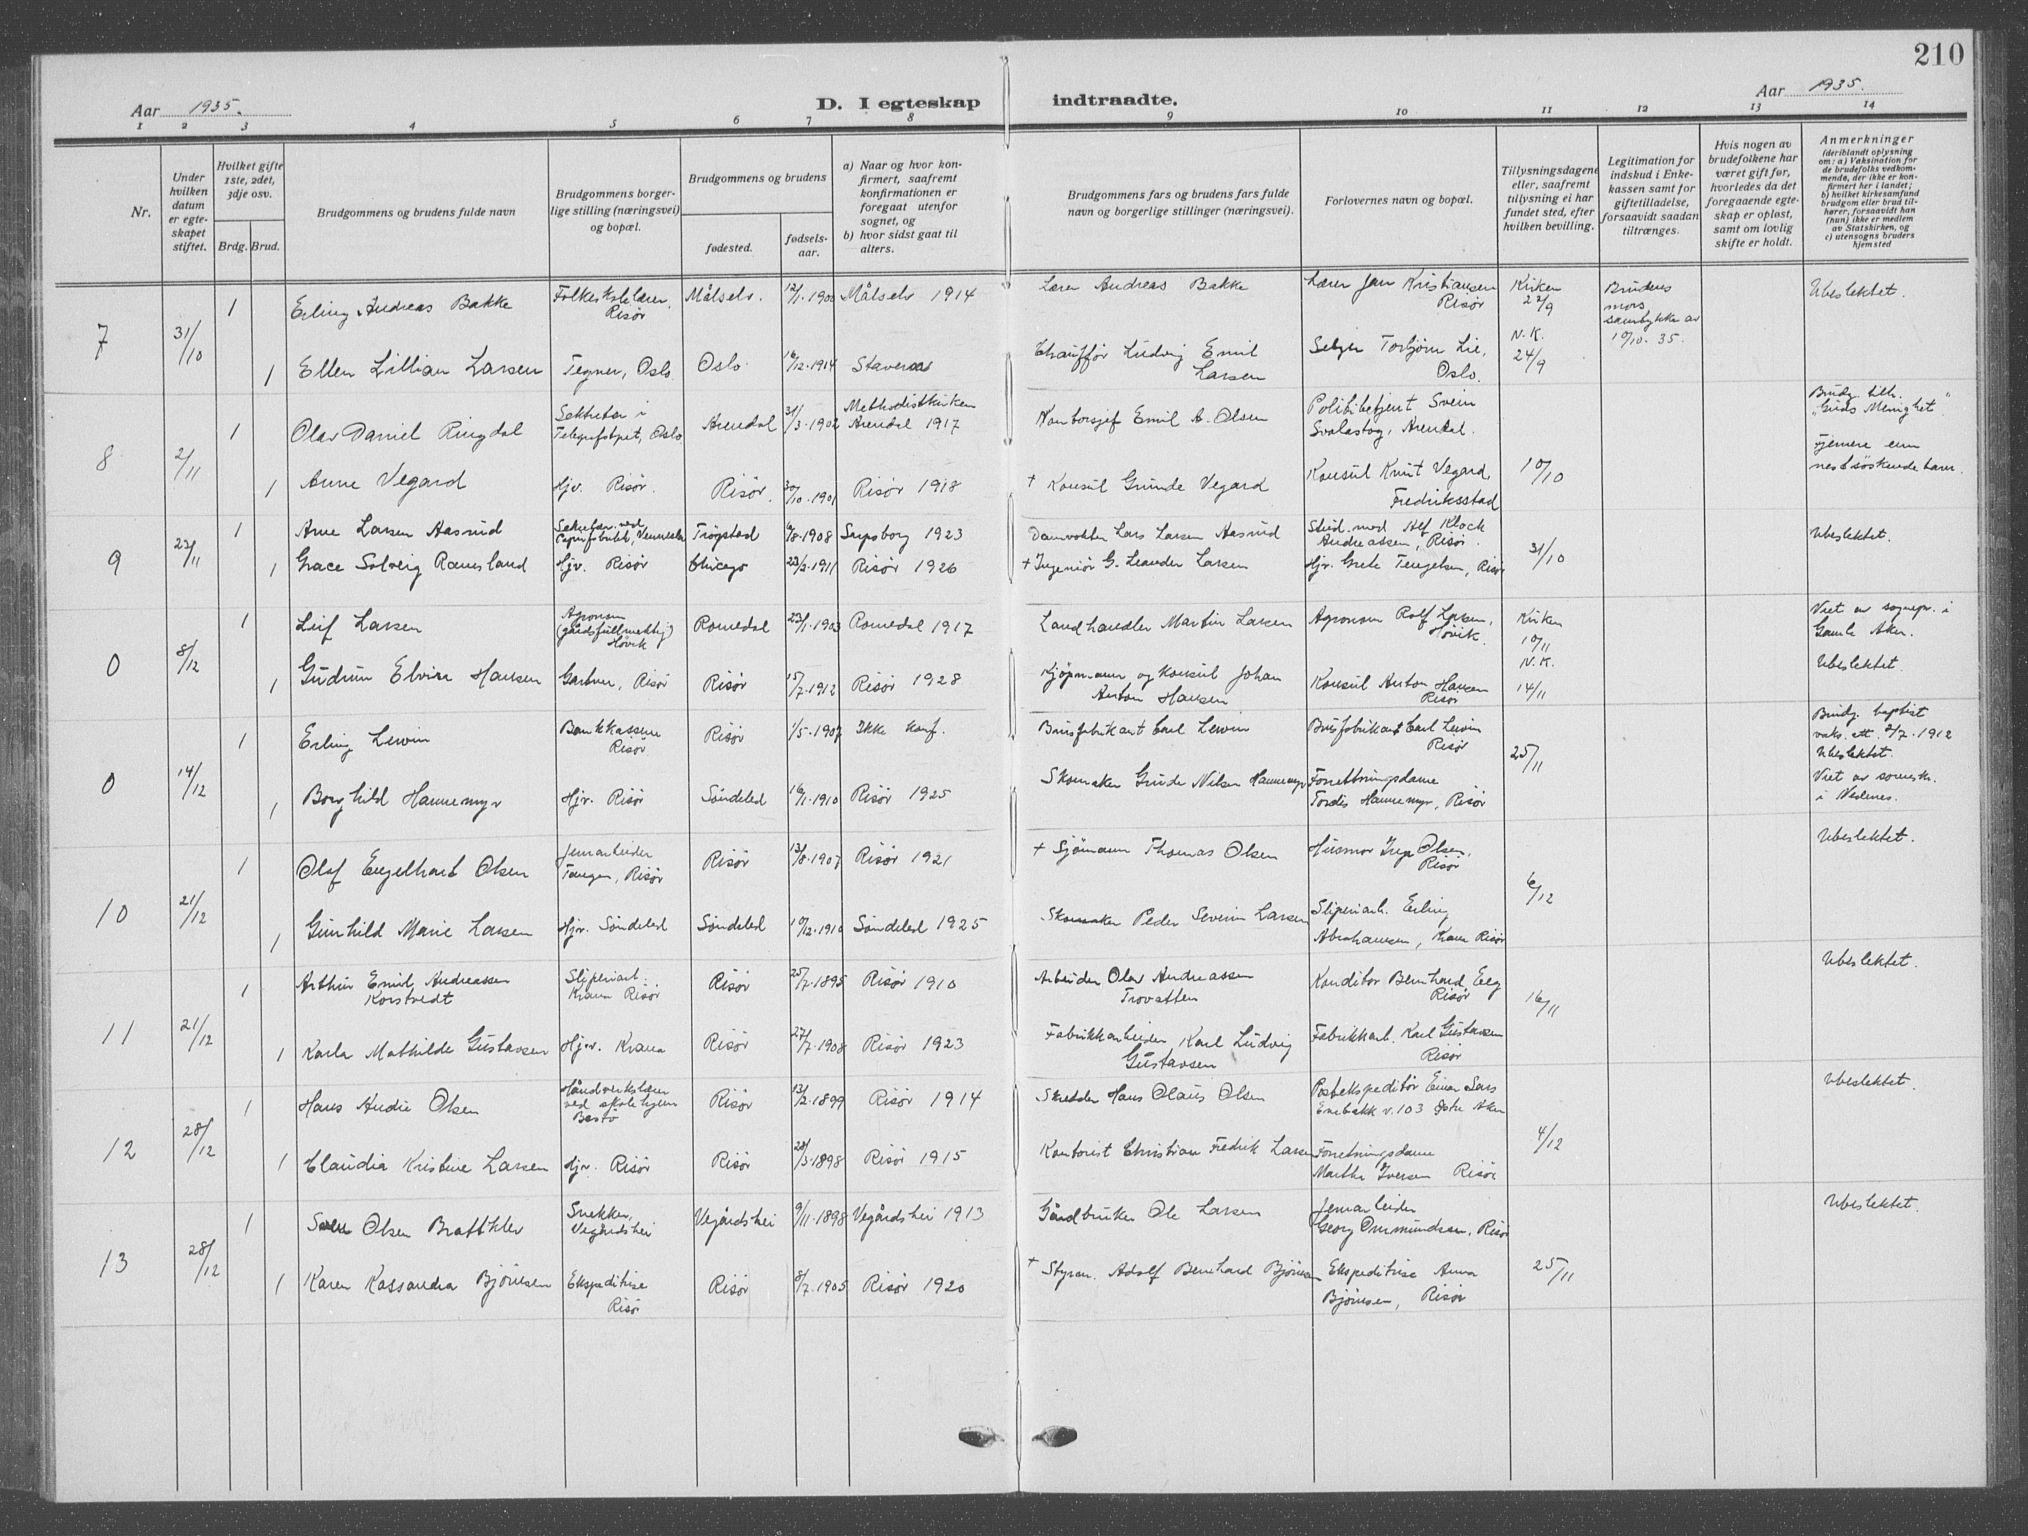 210
Aar 1935.
D. I egteskap indtraadte.
Aar 1935.
1 2 3 4 5 6 7 8 9 10 11 12 13 14
Nr.
Under hvilken datum er egteskapet stiftet.
Hvilket gifte 1ste, 2det, 3dje osv.
Brdg. Brud.
Brudgommens og brudens fulde navn
Brudgommens borgerlige stilling (næringsvei) og bopæl.
Brudgommens og brudens
fødested.
fødselsaar.
a) Naar og hvor konfirmert, saafremt konfirmationen er foregaat utenfor sognet, og
b) hvor sidst gaat til alters.
Brudgommens fars og brudens fars fulde navn og borgerlige stillinger (næringsvei).
Forlovernes navn og bopæl.
Tillysningsdagene eller, saafremt tillysning ei har fundet sted, efter hvilken bevilling.
Legitimation for indskud i Enkekassen samt for giftetilladelse, forsaavidt saadan tiltrænges.
Hvis nogen av brudefolkene har været gift før, hvorledes da det foregaaende egteskap er opløst, samt om lovlig skifte er holdt.
Anmerkninger
(deriblandt oplysning om: a) Vaksination for de brudefolks vedkommende, der ikke er konfirmert her i landet; b) hvilket kirkesamfund brudgom eller brud tilhører, forsaavidt han (hun) ikke er medlem av Statskirken, og c) utensogns bruders hjemsted
7 31/10 1 Erling Andreas Bakke Folkeskolelærer, Risør Målselv. 12/1.1900 Målselv 1914 Lærer Andreas Bakke Lærer Jan Kristiansen Risør Kirken 22/9 Brudens mors samtykke av 10/10. 35. Ubeslektet.
1 Ellen Lillian Larsen Tegner, Oslo Oslo 16/12.1914 Chauffør Ludvig Emil Larsen Torbjørn Lie, Oslo. N.K. 24/9
8 2/11 1 Olav Daniel Ringdal Sekretær i Telegrafstyret, Oslo Arendal 31/3.1902 Methodistkirken Arendal 1917 Kontorsjef Emil A. Olsen Politibetjent Svein Svalastog, Arendal. 10/10 Brudg. tilh. "Guds Menighet".
1 Anne Vegard Hjv. Risør. Risør. 30/10.1901 Risør 1918 + Konsul Grunde Vegard Konsul Knut Vegard, Fredriksstad Fjernere enn nestsøskendebarn.
9 23/11 1 Arne Larsen Aasrud Sekretær ved Papirfabrikk, Vennesla Trøgstad 6/8.1908 Sarpsborg 1923 Damvokter Lars Larsen Aasrud Stud. med Alf Klock Andreassen, Risør. 31/10 Ubeslektet.
1 Grace Solveig Ramsland Hjv. Risør Chicago 23/2.1911 Risør 1926 + Ingeniør G. Leander Larsen Hjv. Grete Tengelsen, Risør
0 8/12 1 Leif Larsen Agronom (gårdsfullmektig) Høvik Romedal 23/1.1903 Romedal 1917 Landhandler Martin Larsen Agronom Rolf Larsen, Høvik. Kirken 10/11 Viet av sognepr. i Gamle Aker.
1 Gudrun Elvira Hansen Gartner, Risør Risør 15/7.1912 Risør 1928 Kjøpmann og Konsul Johan Anton Hansen Konsul Anton Hansen Risør N.K. 14/11 Ubeslektet.
0 14/12 1 Erling Lewin Bankkasserer Risør Risør 1/5.1907 Ikke konf. Brusfabrikant Carl Lewin Brusfabrikant Carl Lewin Risør 25/11 Brudg. baptist vaks. att. 2/7.1912 Ubeslektet.
1 Borghild Hannemyr Hjv. Risør Søndeled 16/1.1910 Risør 1925 Skomaker Gunder Nilsen Hannemyr Forretningsdame Tordis Hannemyr, Risør Viet av sorenskr. i Nedenes.
10 21/12 1 Olaf Engelhart Olsen Jernarbeider Tangen, Risør Risør 13/8.1907 Risør 1921 + Sjømann Thomas Olsen Husmor Inga Olsen, Risør 6/12 Ubeslektet.
1 Gunhild Marie Larsen Hjv. Søndeled Søndeled 10/12.1910 Søndeled 1925 Skomaker Peder Severin Larsen Sliperiarb. Erling Abrahamsen, Krana Risør
11 21/12 1 Arthur Emil Andreassen Korstvedt Sliperiarb. Krana Risør Risør 25/7.1895 Risør 1910 Arbeider Olav Andreassen Trovatten Konditor Bernhard Eeg Risør 16/11 Ubeslektet.
1 Karla Mathilde Gustavsen Hjv. Krana Risør 27/7.1908 Risør 1923 Fabrikkarbeider Karl Ludvig Gustavsen Fabrikkarb. Karl Gustavsen Risør
12 28/12 1 Hans Andre Olsen Håndverkslærer ved skolehjem Bastø Risør 13/2.1899 Risør 1914 Skredder Hans Olaus Olsen Postekspeditør Einar Sars Enebakk v. 103 Østre Aker 4/12 Ubeslektet.
1 Claudia Kristine Larsen Hjv. Risør Risør 28/3.1898 Risør 1915 Kontorist Christian Fredrik Larsen Forretningsdame Martha Iversen Risør
13 28/12 1 Olsen Brattklev Snekker, Vegårdshei Vegårdshei 9/11.1898 Vegårdshei 1913 Gårdbruker Ole Larsen Jernarbeider Georg Ommundsen, Risør 25/11 Ubeslektet.
1 Karen Kassandra Bjørnsen Ekspeditrise Risør Risør 8/7.1905 Risør 1920 + Styrm. Adolf Bernhard Bjørnsen Ekspeditrise Anna Bjørnsen, Risør